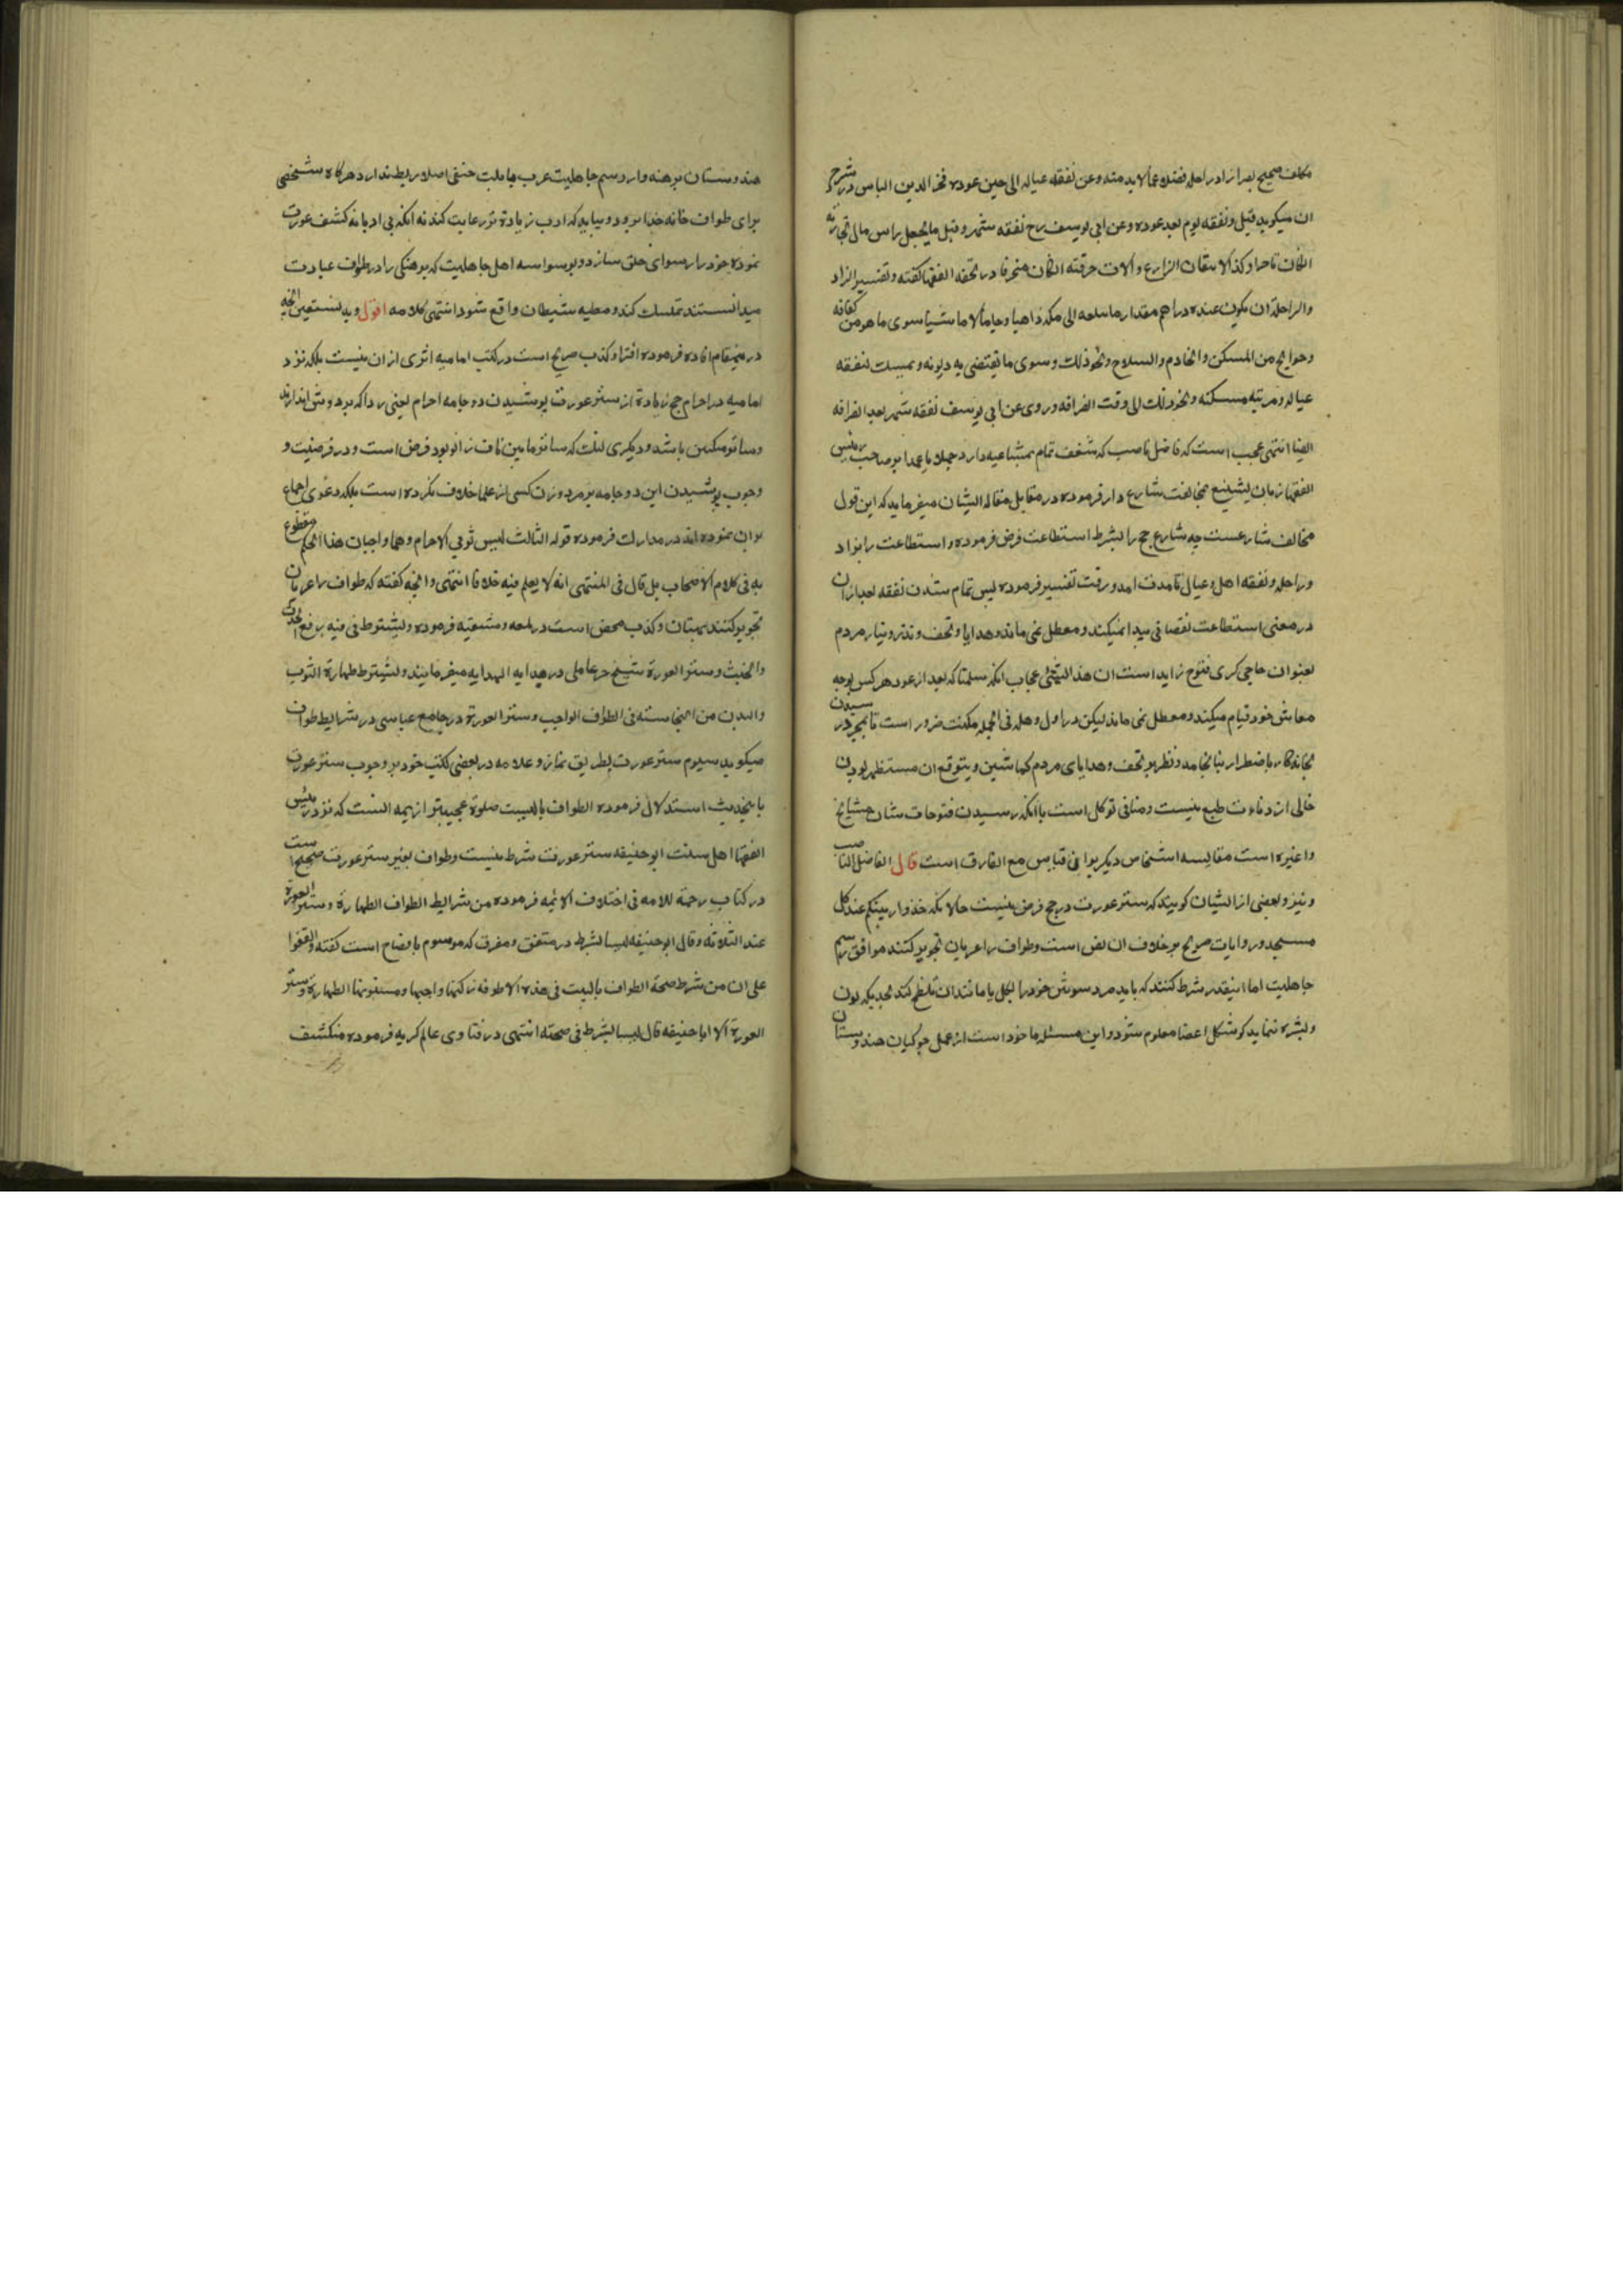 مکلف صحیح بصر از زاد و راحله فضلا عمالابد منه وعن نفقه عیاله الی حین عوده فخر الدین الیاس در شرح
ان میکوید قیل و نفقه یوم بعد عوده وعن ابی یوسف رح نفقه شهر و قیل ما یجعل راس مال تجارته
انکان تاجرا وکذا الات الزارع والات حرفته انکان محترفا در تحفه الفقها کفته و تفسیر الزاد
والراحلة ان یکون عنده دراهم مقدار ما یبلغه الی مکه ذاهبا وجایا لا ماشیا سوی ما هو من کفافه
وحوایجه من المسکن والخادم والسلاح ونحو ذلک وسوی ما یقتضی به دیونه و یمسک لنفقه
عیاله و مرمة مسکنه ونحو ذلک الی وقت انصرافه وروی عن ابی یوسف نفقه شهر بعد انصرافه
ایضا انتهی عجب است که فاضل ناصب که شغف تمام بتشنیع دارد جهلا یا عمدا بر صاحب رئیس
الفقها زبان بتشنیع مخالفت شارع دار فرموده در مقابل مقاله ایشان میفرماید که این قول
مخالف شارعست چه شارع حج را بشرط استطاعت فرض فرموده و استطاعت را بزاد
وراحله و نفقه اهل وعیال تا مدت امد و رفت تفسیر فرموده لیس تمام شدن نفقه بعد ازان
در معنی استطاعت نقصانی پیدا نمیکند و معطل نمی ماند و هدایا و تحف و نذر و نیاز مردم
بعنوان حاجی کری فتوح زاید است ان هذا لشئ عجاب انکه سلمنا که بعد از عود هر کس بوجه
معاش خود قیام میکند و معطل نمی ماند لیکن در اول وهله فی الجمله مکنت ضرور است تا بمجرد رسیدن
بخانه کار باضطرار نیانجامد و نظر بر تحف و هدایای مردم کماشتن و بتوقع ان مستظهر بودن
خالی از دناءت طبع نیست و منافی توکل است با انکه رسیدن فتوحات شان مشایخ
و اغیره است مقایسه اشخاص دیکر بر ان قیاس مع الفارق است قال الفاضل الناصب
و نیز و بعضی از ایشان کویند که ستر عورت در حج فرض نیست حالانکه خذوا زینتکم عند کل
مسجد و روایات صریح بر خلاف ان نص است و طواف را عریان تجویز کنند موافق رسم
جاهلیت اما اینقدر شرط کنند که باید مرد سوءتین خود را بکل یا مانند ان تلطخ کند بحدیکه لون
و بشره ننماید کو شکل اعضا معلوم شود و این مسئله ماخوذ است از عمل جوکیان هندوستان
هندوستان برهنه وار و رسم جاهلیت عرب بملت حنفی اصلا ربط ندارد هرکاه شخصی
برای طواف خانه خدا برود و بیاید که ادب زیاده تر رعایت کند نه انکه بی ادبانه کشف عورت
نموده خود را رسوای خلق سازد و بوسواسه اهل جاهلیت که برهنکی را در طواف عبادت
میدانستند تمسک کند و مطیه شیطان واقع شود انتهی کلامه اقول و به نستعین انچه
درینمقام افاده فرموده افترا و کذب صریح است در کتب امامیه اثری ازان نیست بلکه نزد
امامیه در احرام حج زیاده از ستر عورت پوشیدن دو جامه احرام یعنی ردا که بر دوش اندازند
وساتر منکبین باشد و دیکری لنک که ساتر مابین ناف و زانو بود فرض است و در فرضیت و
وجوب پوشیدن این دو جامه بر مرد و زن کسی از علما خلاف نکرده است بلکه دعوی اجماع
بران نموده اند در مدارک فرموده قوله الثالث لبس ثوبی الاحرام وهما واجبان هذا الحکم مقطوع
به فی کلام الاصحاب بل قال فی المنتهی انه لا یعلم فیه خلافا انتهی و انچه کفته که طواف را عریان
تجویز کنند بهتان و کذب محض است در لمعه دمشقیه فرموده و یشترط فیه رفع الحدث
والخبث و ستر العورة شیخ حر عاملی در هدایه الهدایه میفرمایند و یشترط طهارة الثوب
والبدن من النجاسته فی الطواف الواجب و ستر العورة در جامع عباسی در شرایط طواف
میکوید سیوم ستر عورت بطریق نماز و علامه در بعضی کتب خود بر وجوب ستر عورت
باینحدیث استدلال فرموده الطواف بالبیت صلوة عجیبتر از همه انست که نزد رئیس
الفقها اهل سنت ابو حنیفه ستر عورت شرط نیست و طواف بغیر ستر عورت صحیح است
در کتاب رحمة للامه فی اختلاف الائمه فرموده من شرایط الطواف الطهارة وستر العورة
عند الثلاثه وقال ابو حنیفه لیسا بشرط در متفق و مفرق که موسوم بافصاح است کفته واتفقوا
علی ان من شرط صحة الطواف بالبیت فی هذه الاطوفه رکنها واجبها ومسنونها الطهارة وستر
العورة الا ابا حنیفه قال لیسا بشرط فی صحته انتهی در فتاوی عالمکریه فرموده منکشف